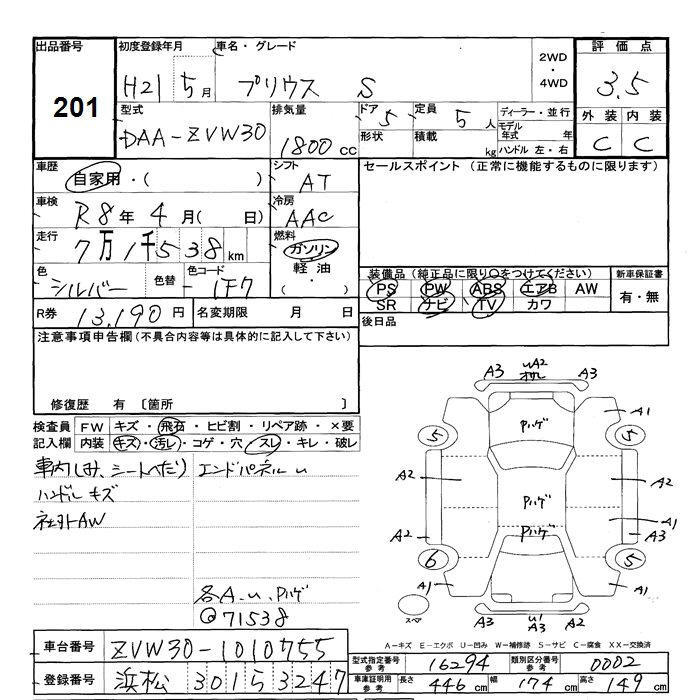 出品番号 初度登録年月 車名・グレード 2WD・4WD 評価点
201 H21 5月 プリウス S 3.5
外装 内装
C C
型式 排気量 ドア 定員 ディーラー・並行
DAA-ZVW30 1800cc 5 5人 モデル年式 年
形状 積載 kg ハンドル 左・右
車歴 シフト セールスポイント (正常に機能するものに限ります)
自家用・( ) AT
車検 冷房
R8年 4月( 日) AAC
走行 燃料
7万1千538km ガソリン
軽油
・( )
色 色替 色コード
シルバー 1F7
装備品(純正品に限り○をつけてください) 新車保証書
PS PW ABS エアB AW 有・無
SR ナビ TV カワ
R券 13,190円 名変期限 月 日
後日品
注意事項申告欄(不具合内容等は具体的に記入して下さい)
修復歴 有 〔箇所 〕
検査員記入欄
FW キズ・飛石・ヒビ割・リペア跡・×要
内装 キズ・汚レ・コゲ・穴・スレ・キレ・破レ
車内しみ、シートへたり エンドパネルu
ハンドルキズ
社外AW
各A.u.Pハゲ
@71538
uA2
A3 A3
A1
Pハゲ
5 5
A2 A2
Pハゲ
A1
Pハゲ
A2 A3
6 5
A1 A1
スペア
A3 u1 A3 A2
A-キズ E-エクボ U-凹み W-補修跡 S-サビ C-腐食 XX-交換済
車台番号 ZVW30-1010755
登録番号 浜松 301 5 3247
型式指定番号 参考 16294 類別区分番号 参考 0002
車庫証明用 参考 長さ 446cm 幅 174cm 高さ 149cm